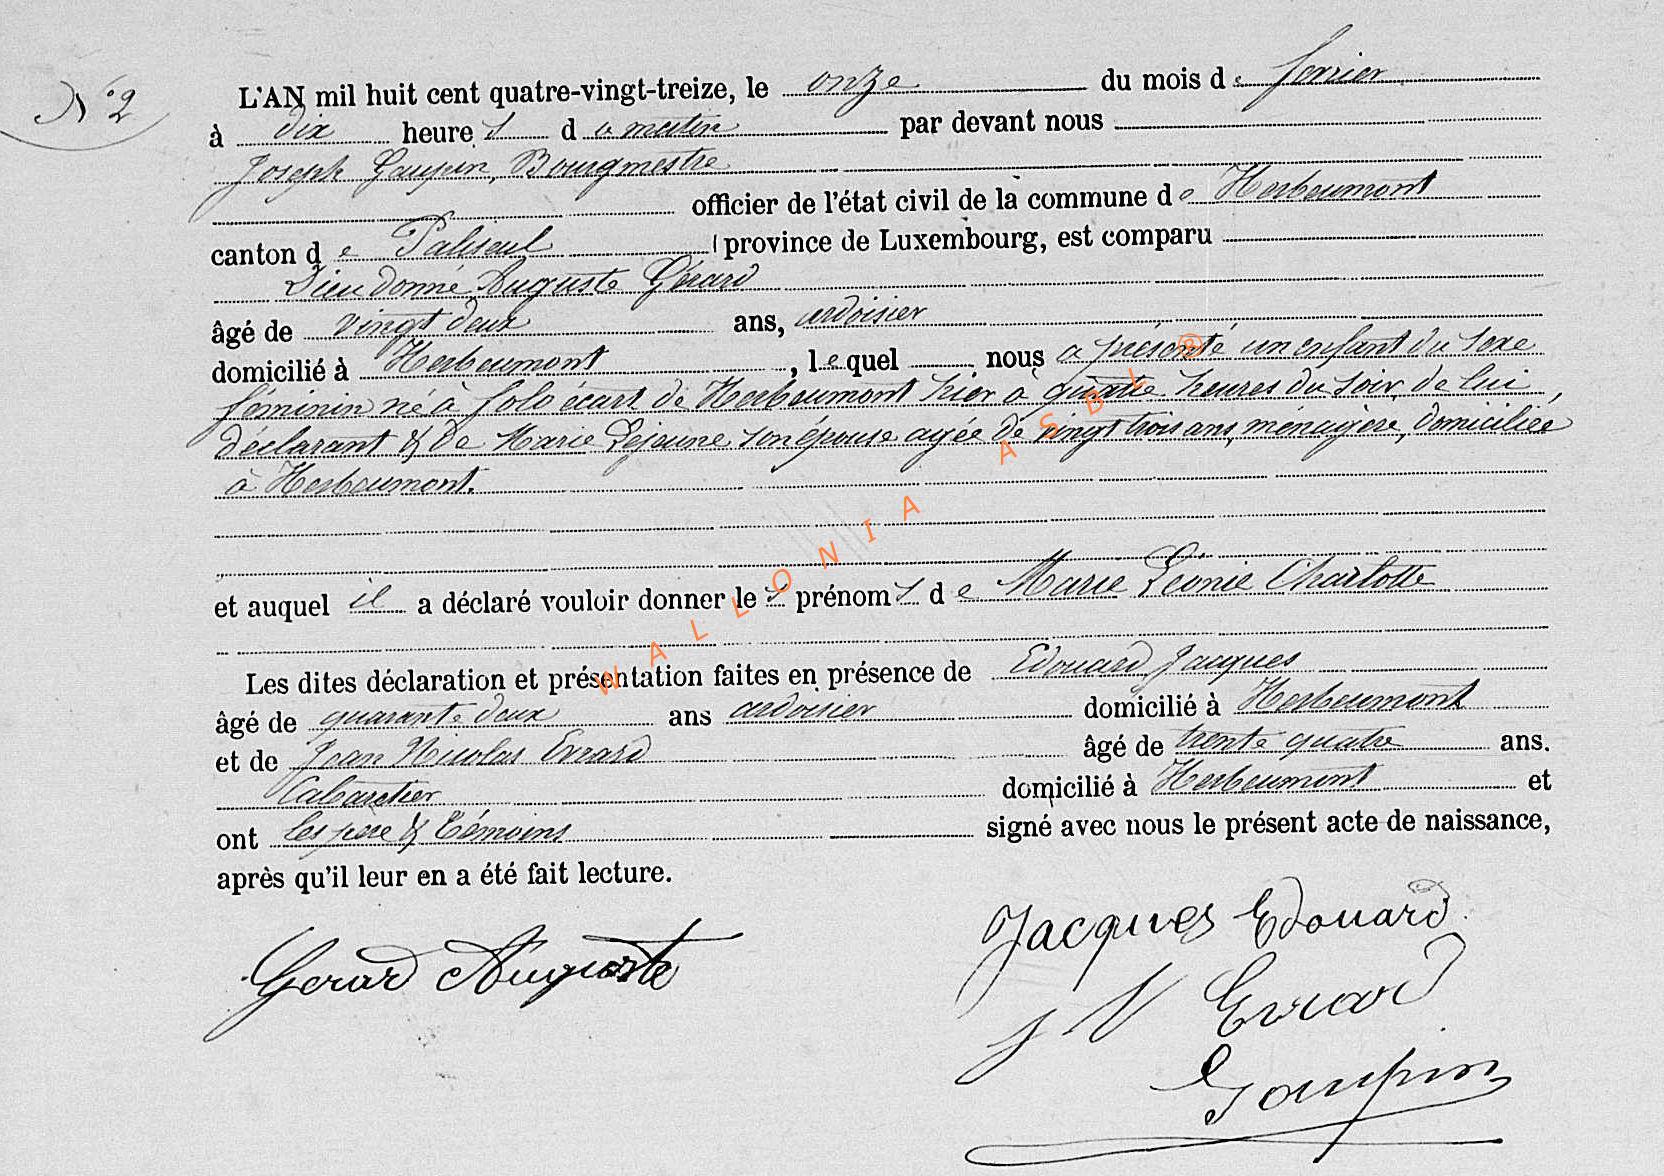 N° 2
L'AN mil huit cent quatre-vingt-treize, le onze du mois de fevrier
à dix heures du matin par devant nous
Joseph Goupin, Bourgmestre
officier de l'état civil de la commune de Herbeumont
canton de Paliseul province de Luxembourg, est comparu
Dieudonné Auguste Gérard
âgé de vingt deux ans, ardoisier
domicilié à Herbeumont, lequel nous a présenté un enfant du sexe
féminin né à folo écart de Herbeumont hier à quatre heures du soir, de lui
déclarant & de Marie Lejeune son épouse agée de vingt trois ans, ménagère, domiciliée
à Herbeumont.
et auquel il a déclaré vouloir donner les prénoms de Marie Léonie Charlotte
Les dites déclaration et présentation faites en présence de Edouard Jacques
âgé de quarante deux ans ardoisier domicilié à Herbeumont
et de Jean Nicolas Evrard âgé de trente quatre ans.
Cabaretier domicilié à Herbeumont et
ont les père & témoins signé avec nous le présent acte de naissance,
après qu'il leur en a été fait lecture.
Gerard Auguste
Jacques Edouard
J N Evrard
Goupin
WALLONIA ASBL ®